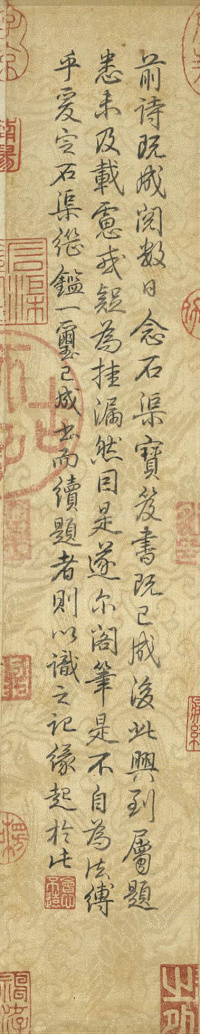 前詩既成閱數日念石渠寶笈書既已成後此興到屬題
悉未及載慮或疑為挂漏然因是遂尔閣筆是不自為法縛
乎爰定石渠繼鑑一璽已成書而續題者則以識之記緣起於此